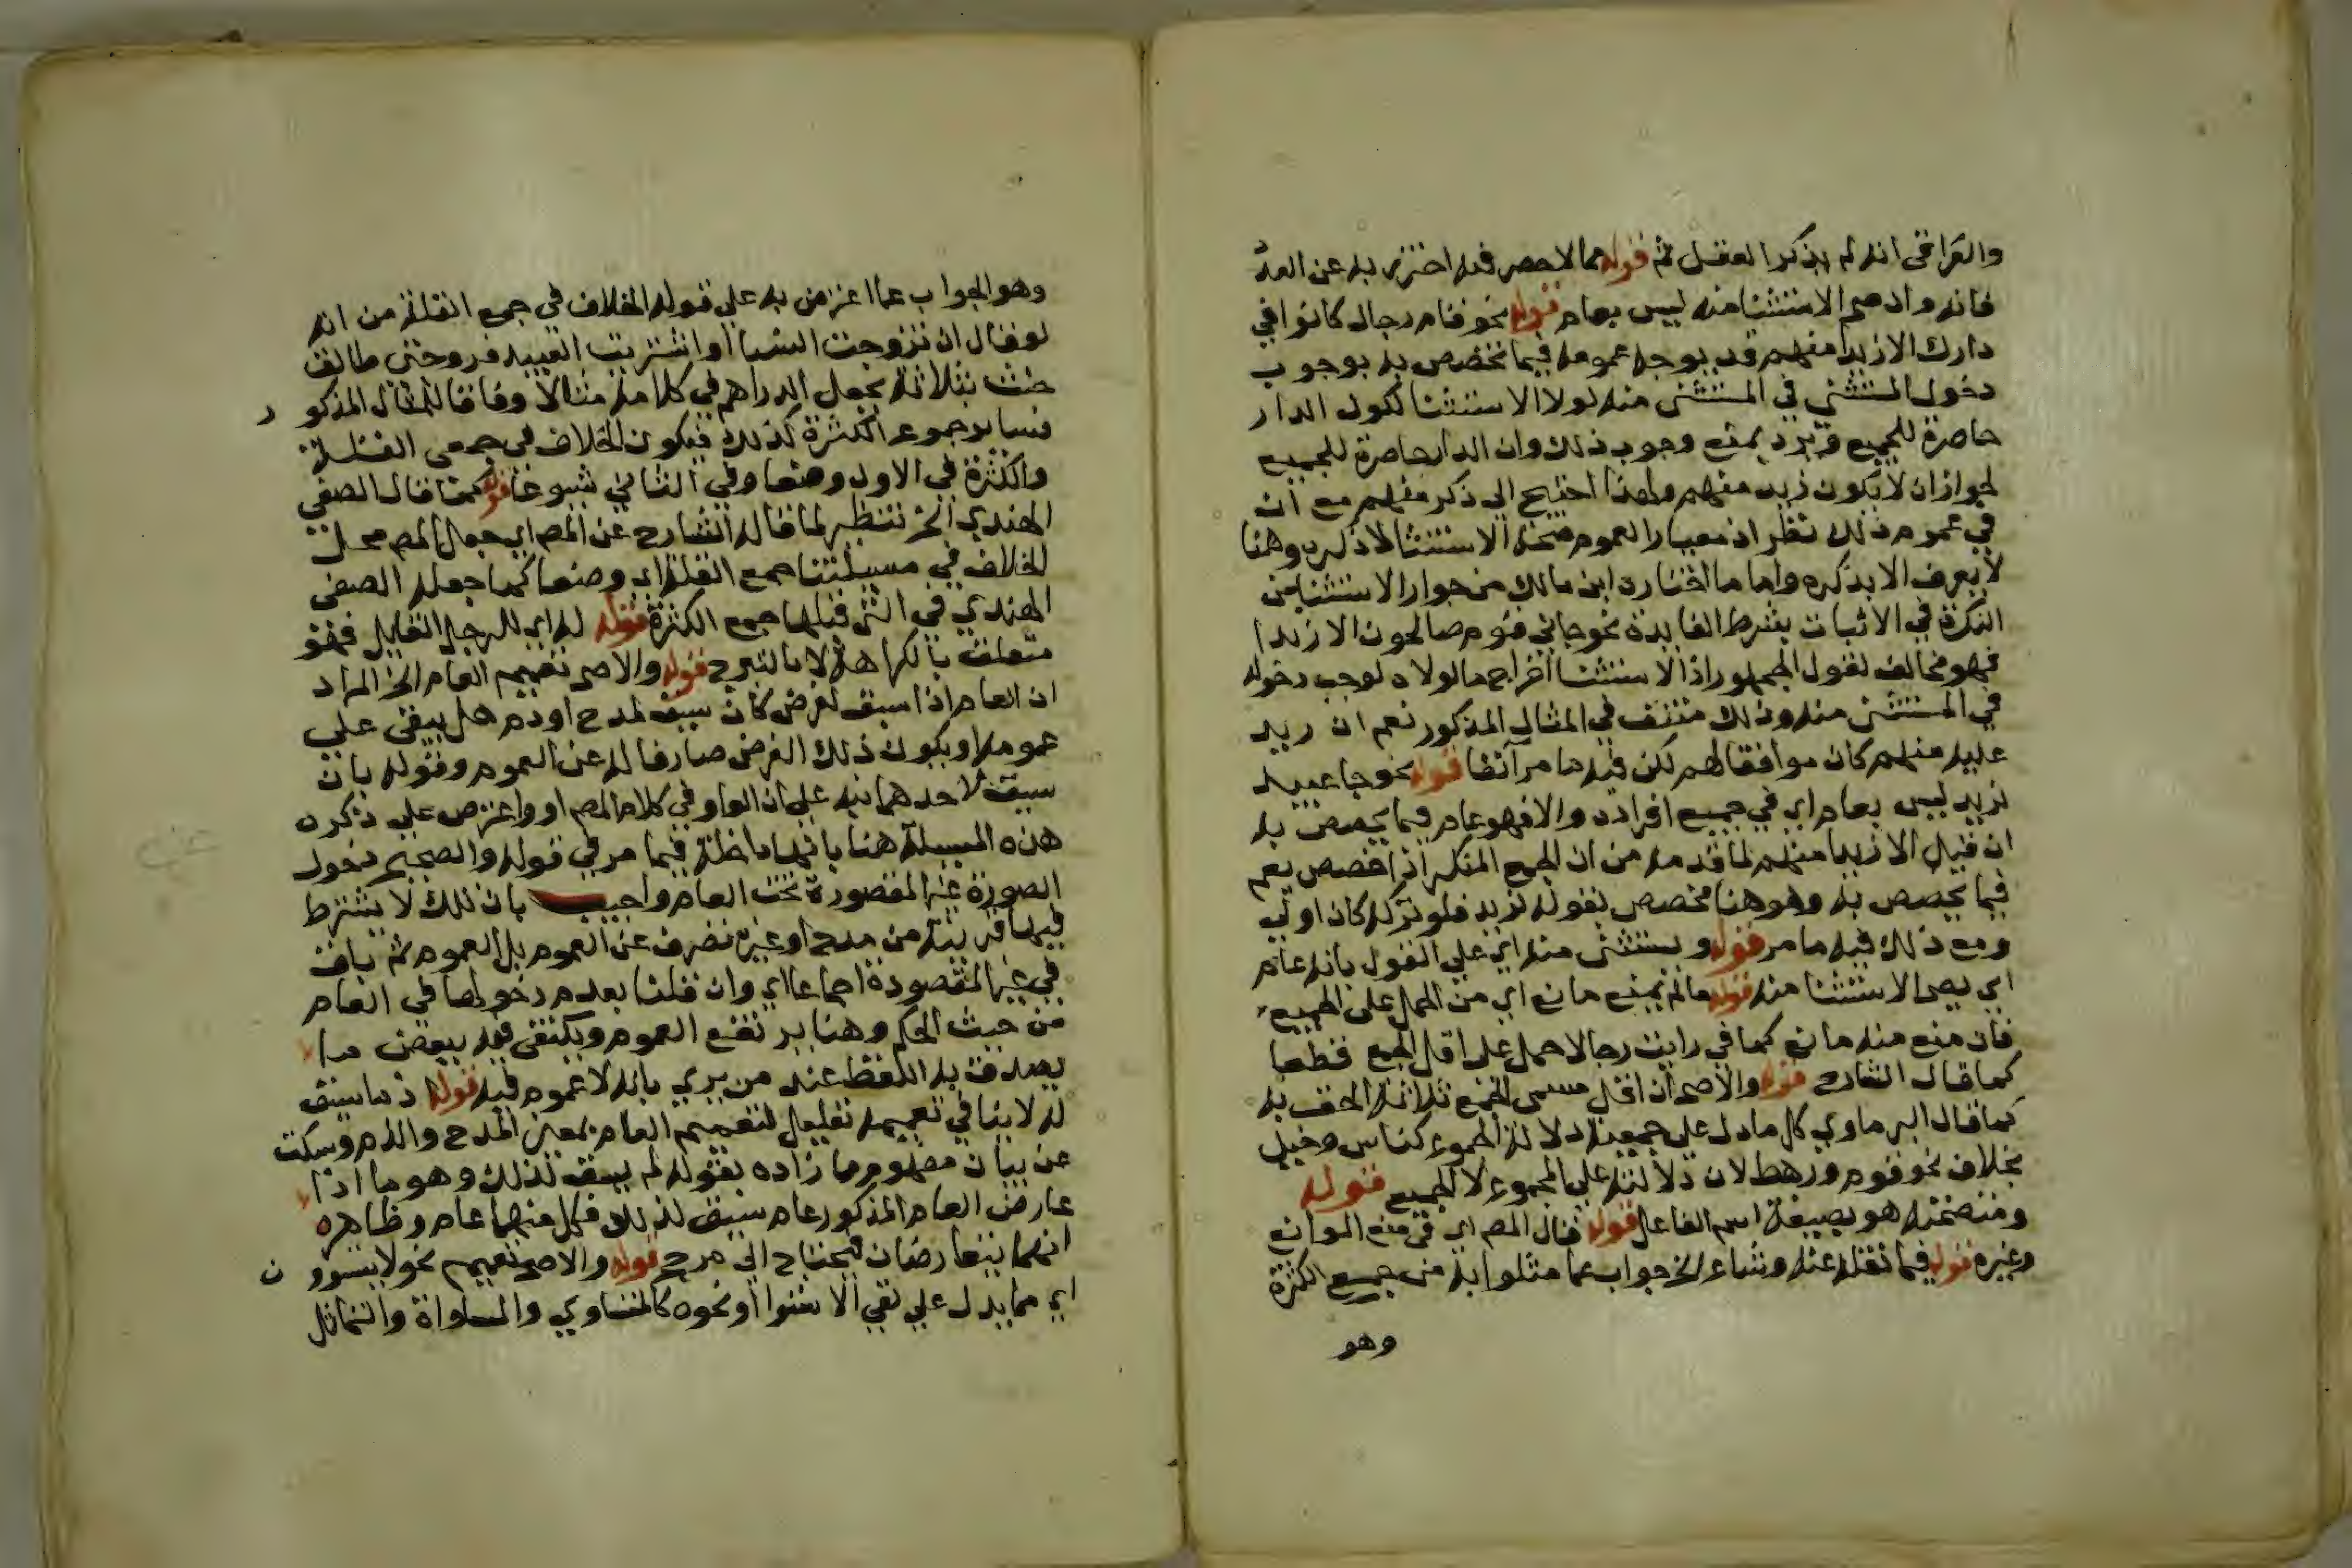 والقرافي انه لم يذكر العقل ثم قوله مما لا حصر فيه احترز به عن العد
فانه وان صح الاستثنا منه ليس بعام قوله نحو قام رجال كانوا في
دارك الا زيدا منهم قد يوجه عمومه فيما تخصص به بوجوب
دخول المستثنى في المستثنى منه لولا الاستثنا لكون الدار
حاصرة للجميع ويرد بمنع وجوب ذلك وان الدار حاصرة للجميع
لجواز ان لا يكون زيد منهم ولهذا احتيج الى ذكر منهم مع ان
في عموم ذلك نظر اذ معيار العموم صحة الاستثنا لا ذكره وهنا
لا يعرف الا بذكره واما ما اختاره ابن مالك من جواز الاستثنا من
النكرة في الاثبات بشرط الفايدة نحو جاني قوم صالحون الا زيدا
فهو مخالف لقول الجمهور اذ الاستثنا اخراج ما لولاه لوجب دخوله
في المستثنى منه وذلك منتف في المثال المذكور نعم ان زيد
عليه منهم كان موافقا لهم لكن فيه ما مر آنفا قوله نحو جا عبيد
لزيد ليس بعام اي في جميع افراده والا فهو عام فيما يخصص به
ان قيل الا زيدا منهم لما قدمه من ان الجمع المنكر اذا خصص يعم
فيما يخصص به وهو هنا مخصص بقوله لزيد فلو تركه كان اولى
ومع ذلك فيه ما مر قوله ويستثنى منه اي على القول بانه عام
اي يصح الاستثنا منه قوله ما لم يمنع مانع اي من الحمل على الجميع
فان منع منه مانع كما في رايت رجالا حمل على اقل الجمع قطعا
كما قال الشارح قوله والاصح ان اقل مسمى الجمع ثلاثة الحق به
كما قال البرماوي كل ما دل على جمعيته دلالة الجموع كناس وخيل
بخلاف نحو قوم ورهط لان دلالته على المجموع لا الجميع قوله
ومتضمنه هو بصيغة اسم الفاعل قوله قال المص اي في منع الموانع
وغيره قوله فيما نقله عنه وشاع الخ جواب عما مثلوا به من جميع الكثرة
وهو
وهو الجواب عما اعترض به على قوله الخلاف في جمع القلة من انه
لو قال ان تزوجت النسا او اشتريت العبيد فزوجتي طالق
حنث بثلاثة بجعل الدراهم في كلامه مثالا وفاقا للمثال المذكور
فساير جموع الكثرة كذلك فيكون الخلاف في جمعي القلة
والكثرة في الاول وضعا وفي الثاني شيوعا قوله كما قال الصفي
الهندي الخ تنظير لما قاله الشارح عن المص اي جعل المص محل
الخلاف في مسيلتنا جمع القلة اي وضعا كما جعله الصفي
الهندي في التي قبلها جمع الكثرة قوله له اي للرجل القايل فهو
متعلق بالكراهة لا بالتبرج قوله والاصح تعميم العام الخ المراد
ان العام اذا سبق لغرض كان سيق لمدح او ذم هل يبقى على
عمومه او يكون ذلك الغرض صارفا له عن العموم وقوله بان
سيق لاحدهما نبه على ان الواو في كلام المص او واعترض على ذكره
هذه المسيلة هنا بانها داخلة فيما مر في قوله والصحيح دخول
الصورة غير المقصودة تحت العام واجيب بان تلك لا يشترط
فيها قرينة من مدح او غيره تصرف عن العموم بل العموم ثم باق
في غير المقصودة اجماعا اي وان قلنا بعدم دخولها في العام
من حيث الحكم وهنا يرتفع العموم ويكتفى فيه ببعض ما
يصدق به اللفظ عند من يرى بانه لا عموم فيه قوله اذ ما سيق
له لا ينافي تعميمه تعليل لتعميم العام بمعنى المدح والذم وسكت
عن بيان مفهوم ما زاده بقوله لم يسق لذلك وهو ما اذا
عارض العام المذكور عام سيق لذلك فكل منهما عام وظاهره
انهما يتعارضان فيحتاج الى مرجح قوله والاصح تعميم نحو لا يستوون
اي مما يدل على نفي الاستوا او نحوه كالتساوي والمساواة والتماثل